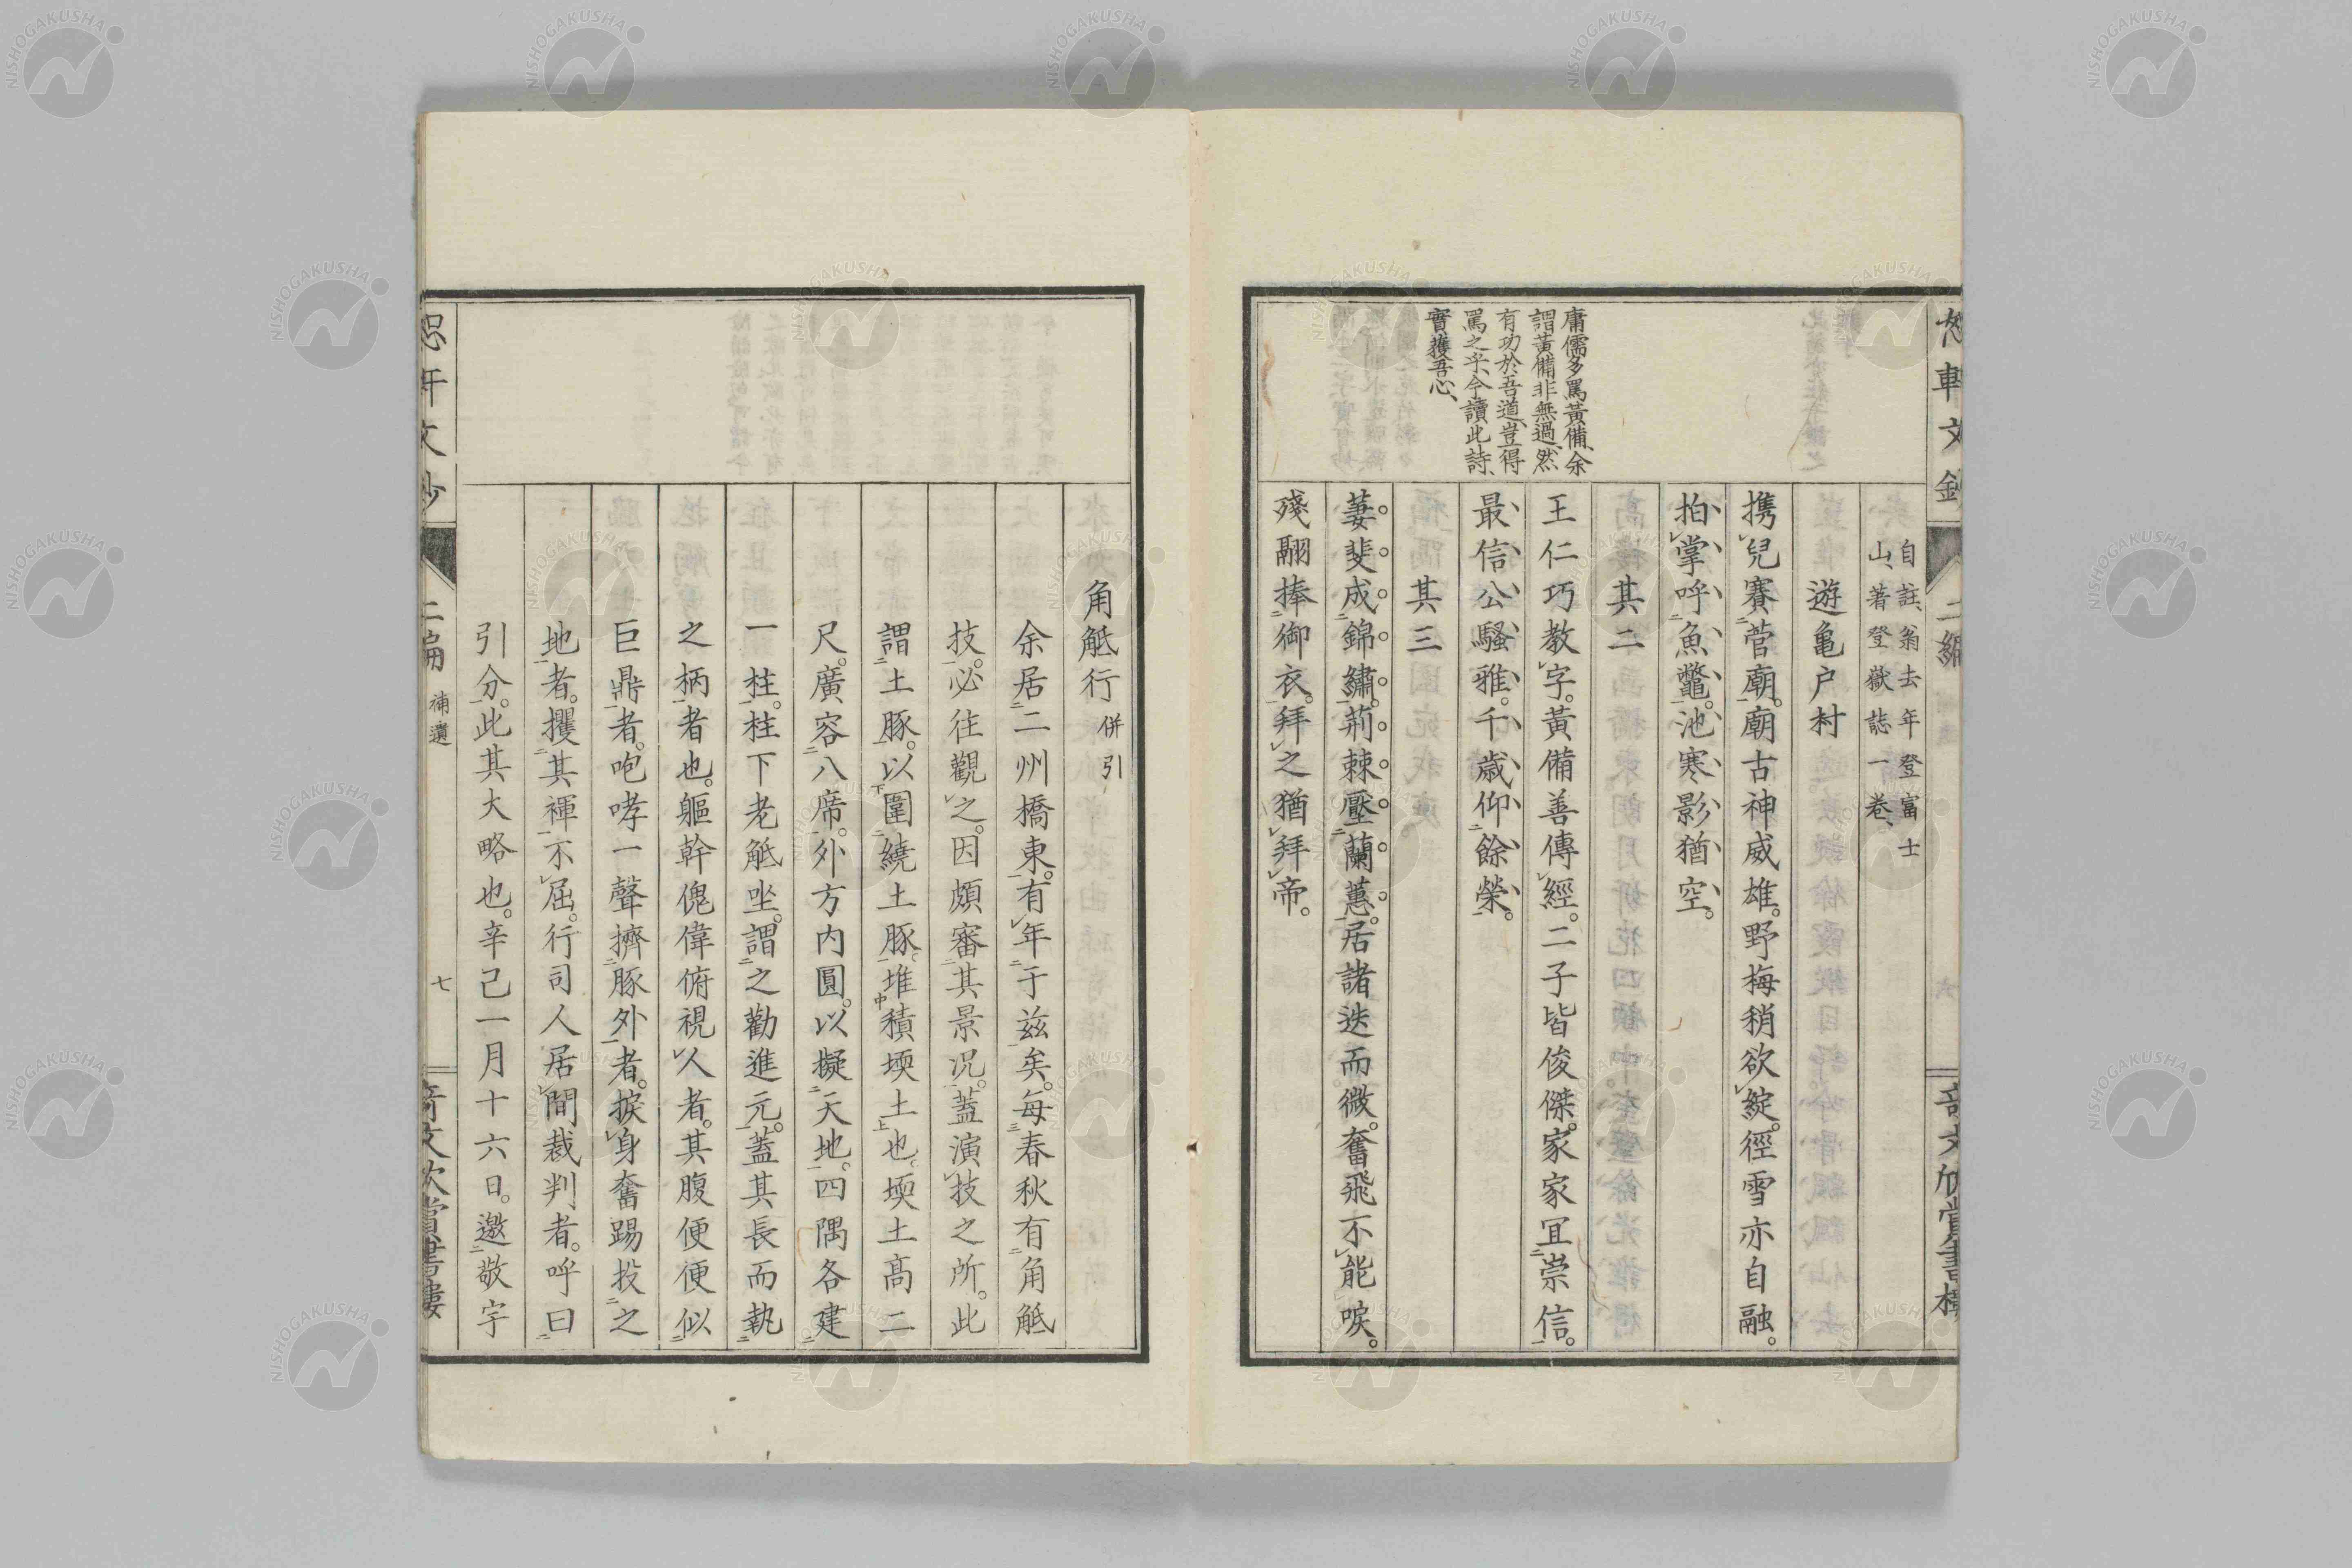 自註、翁去年登富士
山、著登嶽誌一卷、
遊亀戸村
携兒賽菅廟。廟古神威雄。野梅稍欲綻。徑雪亦自融。
拍掌呼魚鼈。池寒影猶空。
其二
王仁巧教字。黃備善傳經。二子皆俊傑。家家宜崇信。
最信公騷雅。千歳仰餘榮。
其三
萋斐成錦繡。荊棘壓蘭蕙。居諸迭而微。奮飛不能唳。
殘翮捧御衣。拜之猶拜帝。
庸儒多罵黃備、余
謂黃備非無過、然
有功於吾道、豈得
罵之乎、今讀此詩、
實獲吾心、
二編
角觝行 併引
余居二州橋東。有年于茲矣。每春秋有角觝
技。必往觀之。因頗審其景況。蓋演技之所。此
謂土豚。以圍繞土豚。堆積堧土也。堧土高二
尺。廣容八席。外方内圓。以擬天地。四隅各建
一柱。柱下老觝坐。謂之勸進元。蓋其長而執
之柄者也。軀幹傀偉俯視人者。其腹便便似
巨鼎者。咆哮一聲擠豚外者。捩身奮踢投之
地者。攫其褌不屈。行司人居間裁判者。呼曰
引分。此其大略也。辛己一月十六日。邀敬宇
恕軒文鈔
二編
補遺
七
奇文欣賞書樓